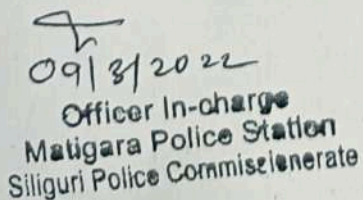 09/3/2022
Officer In-charge
Matigara Police Station
Siliguri Police Commissionerate